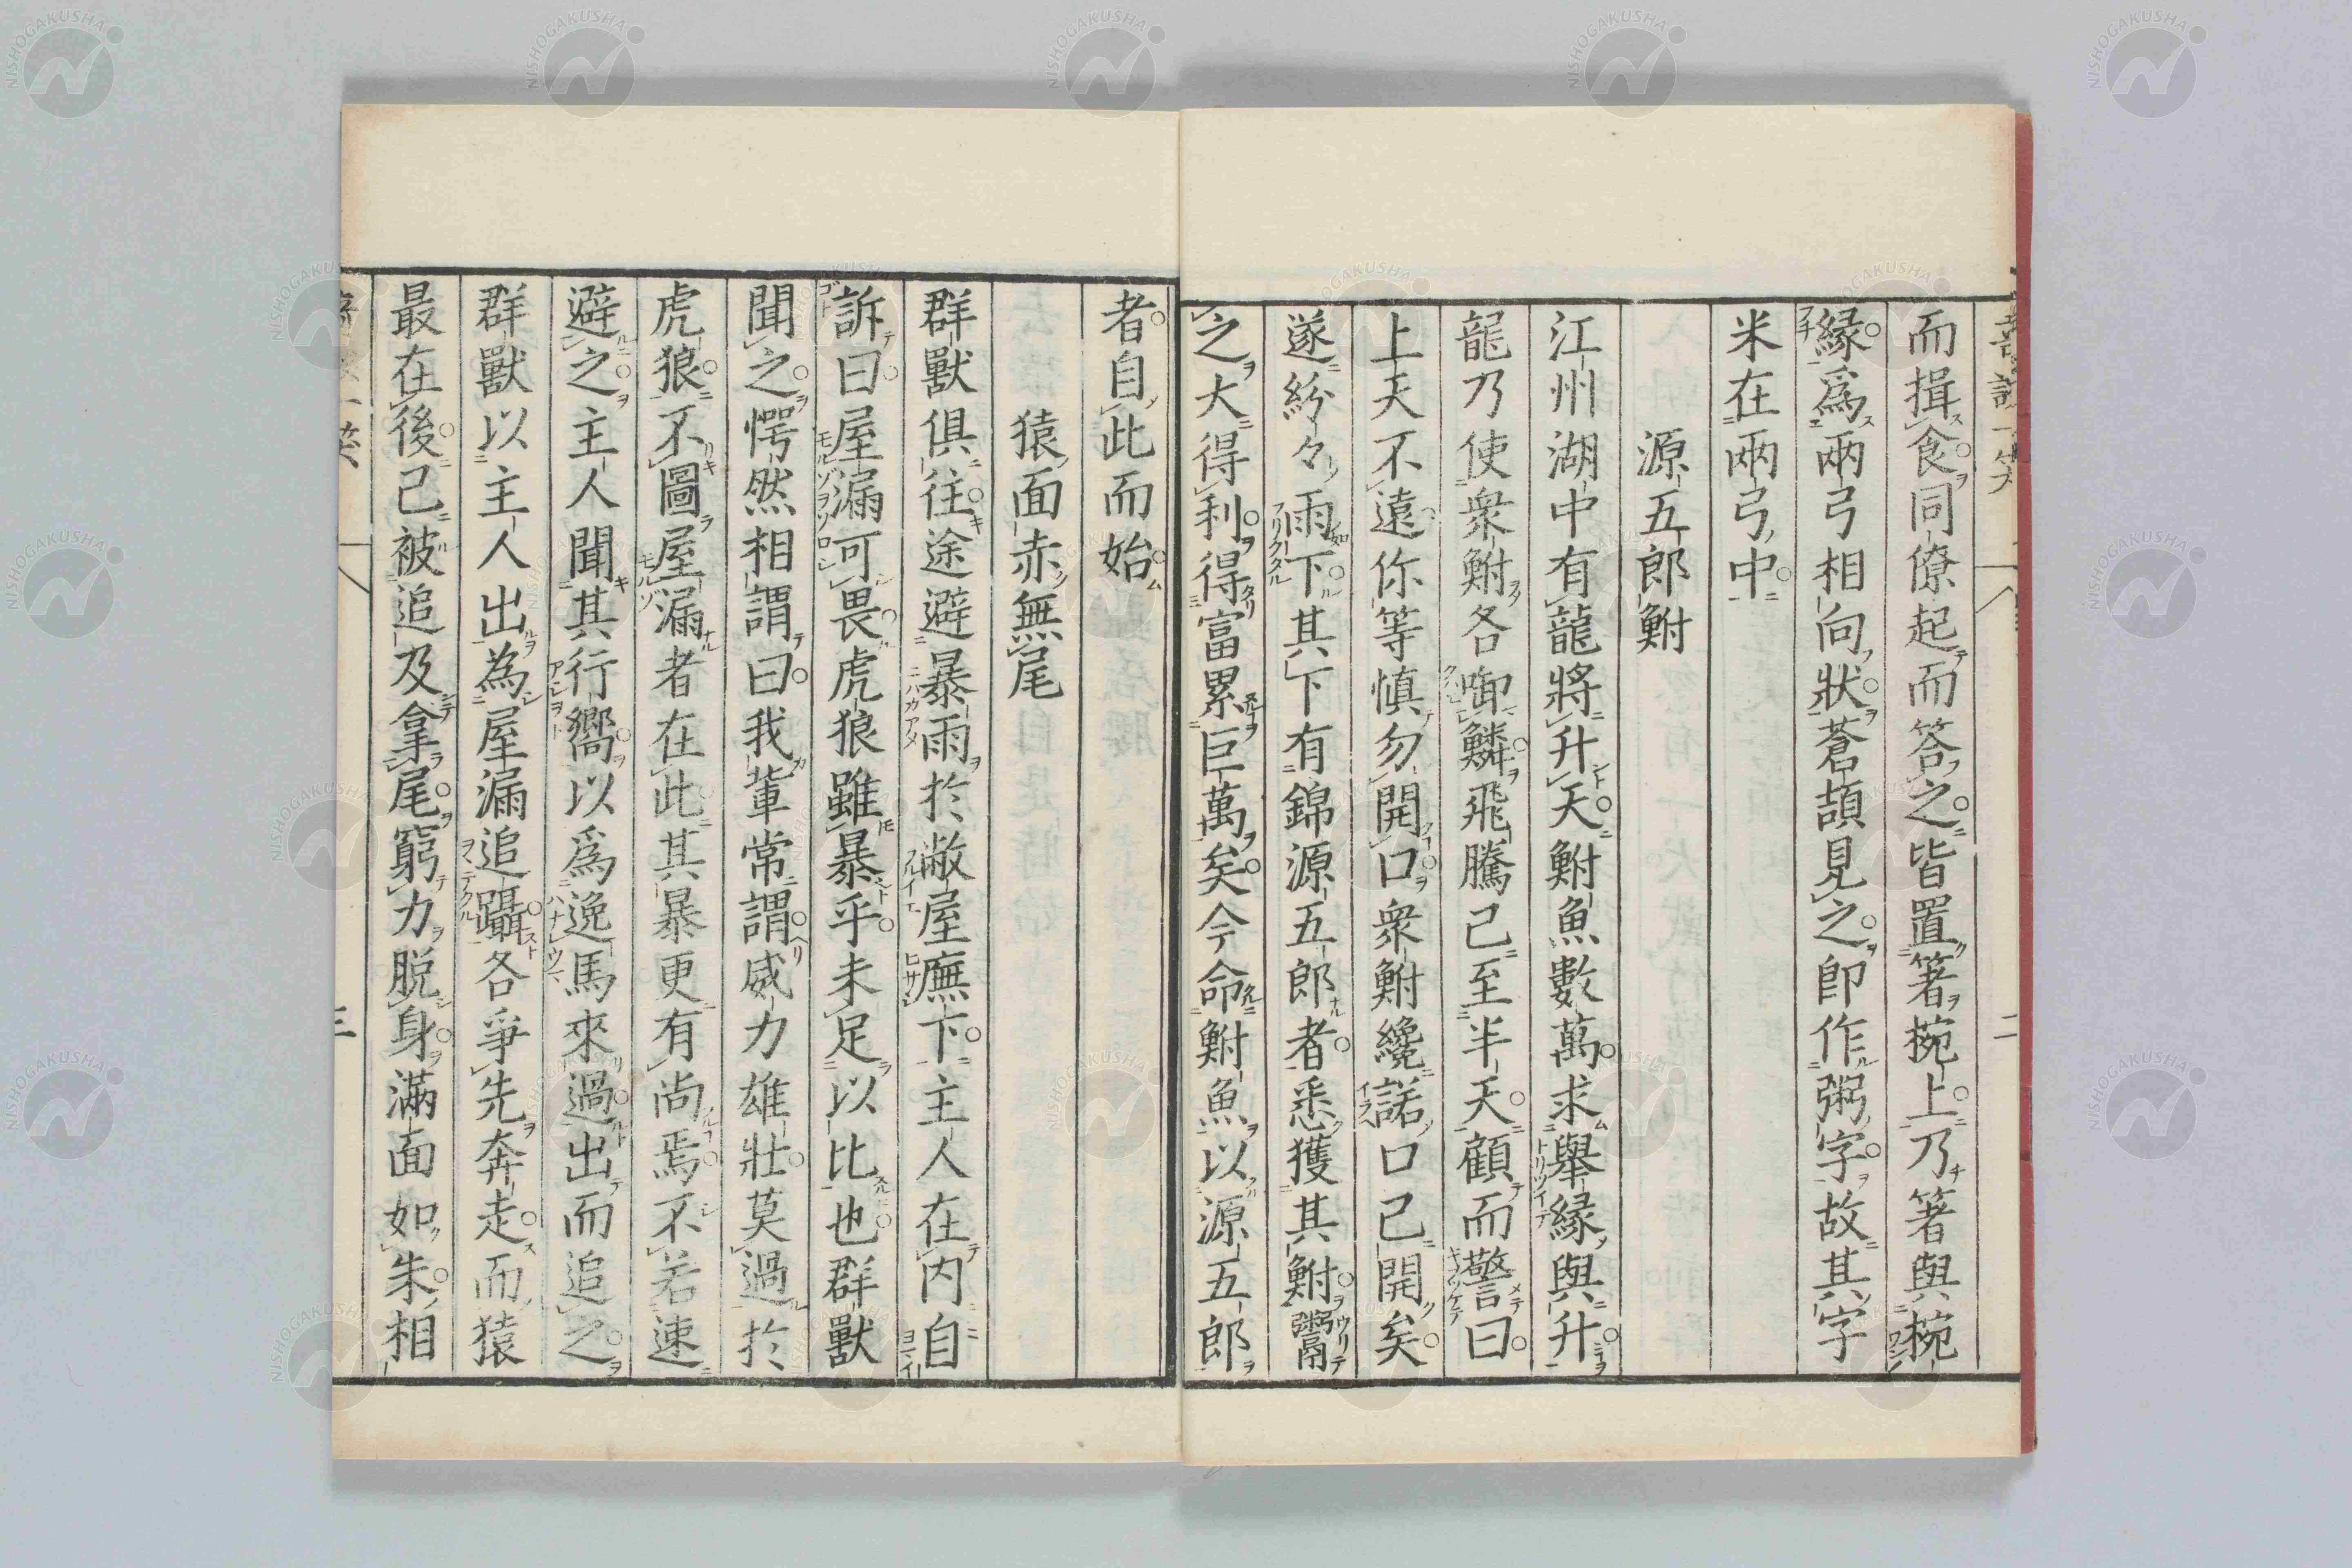 而揖食同僚起而答之皆置箸椀上乃箸與椀
縁爲兩弓相向狀蒼頡見之即作粥字故其字
米在兩弓中
源五郎鮒
江州湖中有龍將升天鮒魚數萬求舉縁與升
龍乃使衆鮒各啣鱗飛騰已至半天顧而警曰
上天不遠你等慎勿開口衆鮒纔諾口已開矣
遂紛々雨下其下有錦源五郎者悉獲其鮒鬻
之大得利得富累巨萬矣今命鮒魚以源五郎
者自此而始
猿面赤無尾
群獸俱往途避暴雨於敝屋廡下主人在内自
訴曰屋漏可畏虎狼雖暴乎未足以比也群獸
聞之愕然相謂曰我輩常謂威力雄壯莫過於
虎狼不圖屋漏者在此其暴更有尚焉不若速
避之主人聞其行嚮以爲逸馬來過出而追之
群獸以主人出為屋漏追躡各爭先奔走而猿
最在後已被追及拿尾窮力脱身滿面如朱相
三